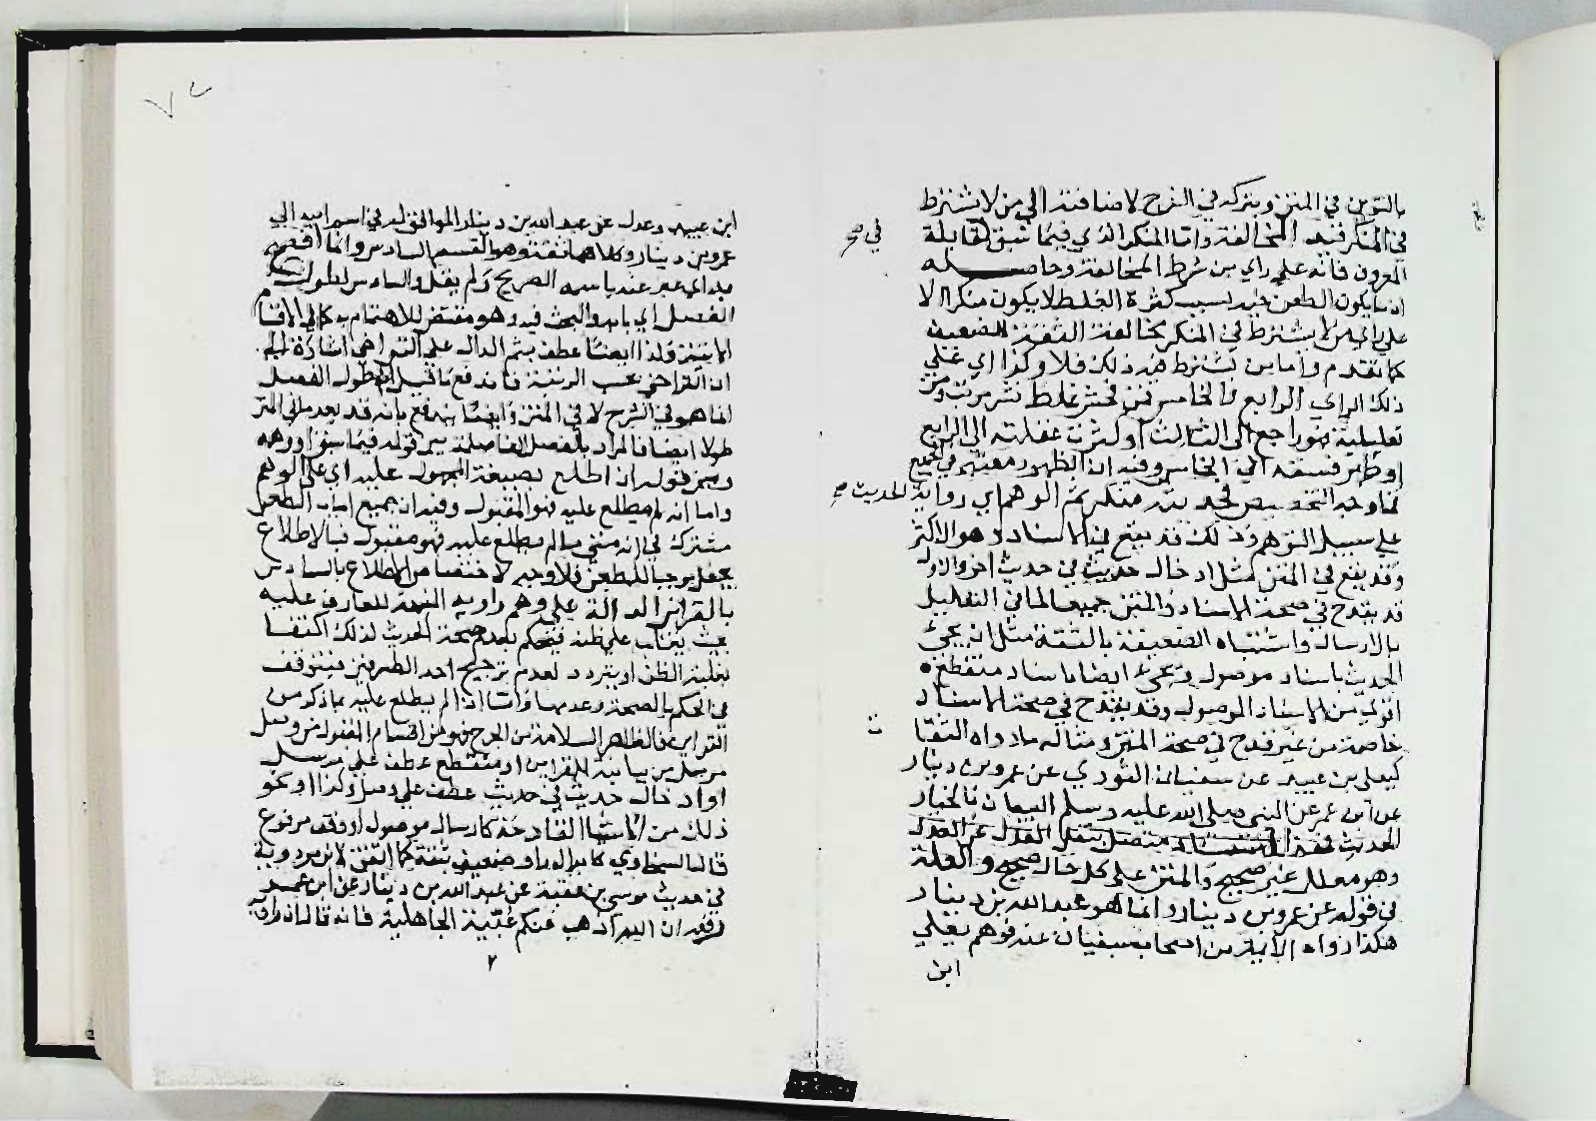 بالتنوين في المتن وبتركه في الشرح لاضافته الي من لا يشترط
في المنكر قيد المخالفة واما المنكر الذي فيما سبق لمقابلة
في صح
المعروف فانه علي راي من شرط المخالفة وحاصله
ان ما يكون الطعن فيه بسبب كثرة الغلط لا يكون منكرا الا
علي راي من لا يشترط في المنكر مخالفة الثقة للضعيف
كما تقدم واما من يشترط ذلك فلا وكذا اي علي
ذلك الراي الرابع والخامس فمن فحش غلطه نشر مرتب ومن
تعليلية فهو راجع الي الثالث او كثرت غفلته الي الرابع
او ظهر فسقه الي الخامس وفيه ان الظهور معتبر في الجميع
فما وجه التخصيص فحديثه منكر ثم الوهم اي رواية
الحديث صح
علي سبيل التوهم وذلك قد يقع في الاسناد وهو الاكثر
وقد يقع في المتن كمثل ادخال حديث في حديث اخر والاول
قد يقدح في صحة الاسناد والمتن جميعا لما في التعليل
بالارسال واشتباه الضعيف بالثقة مثل ان يجئ
الحديث باسناد موصول ويجئ ايضا باسناد منقطع
اقوي من الاسناد الموصول وقد يقدح في صحة الاسناد
خاصة من غير قدح في صحة المتن ومثاله ما رواه الثقات
كيعلي بن عبيد عن سفيان الثوري عن عمرو بن دينار
عن ابن عمر عن النبي صلي الله عليه وسلم البيعان بالخيار
الحديث فهذا اسناد متصل بنقل العدل عن العدل
وهو معلل غير صحيح والمتن علي كل حال صحيح والعلة
في قوله عن عمرو بن دينار وانما هو عبد الله بن دينار
هكذا رواه الايمة من اصحاب سفيان عنه فوهم يعلي
ابن
ابن عبيد وعدل عن عبد الله بن دينار الموافق له في اسم ابيه الي
عمرو بن دينار وكلاهما ثقة وهو القسم السادس وانما افصح
به اي عبر عنه باسمه الصريح ولم يقل والسادس لطول
الفصل اي بابه والبحث فيه وهو مقتض للاهتمام به كما في الاقسام
الاتية ولذا ايضا عطف بثم الدال علي التراخي اشارة الي
ان التراخي بحسب الرتبة فاندفع ما قيل ان طول الفصل
انما هو في الشرح لا في المتن وايضا يندفع بانه قد يعد ما في المتن
طولا ايضا فالمراد بالفصل الفاصلة بين قوله فيما سبق او وهمه
وبين قوله ان اطلع بصيغة المجهول عليه اي علي الوهم
واما ان لم يطلع عليه فهو المقبول وفيه ان جميع اسباب الطعن
مشترك في انه متي ما لم يطلع عليه فهو مقبول فبالاطلاع
يجعل موجبا للطعن فلا وجه لاختصاص الاطلاع بالسادس
بالقراين الدالة علي وهم راويه المنبهة للعارف عليه
بحيث يغلب علي ظنه فيحكم بعدم صحة الحديث لذلك اكتفا
بغلبة الظن او يتردد لعدم ترجيح احد الطرفين فيتوقف
في الحكم بالصحة وعدمها واما اذا لم يطلع عليه بما ذكر من
القراين فالظاهر السلامة من الجرح فهو من اقسام المقبول من وصل
مرسل من بيانية للقراين او منقطع عطف علي مرسل
او ادخال حديث في حديث عطف علي وصل وكذا او نحو
ذلك من الاشيا القادحة كارسال موصول او وقف مرفوع
قال السخاوي كابدال راو ضعيف بثقة كما اتفق لابن مردويه
في حديث موسي بن عقبة عن عبد الله بن دينار عن ابن عمر
رفعه ان الله اذهب عنكم عبية الجاهلية فانه قال ان راويه
٢